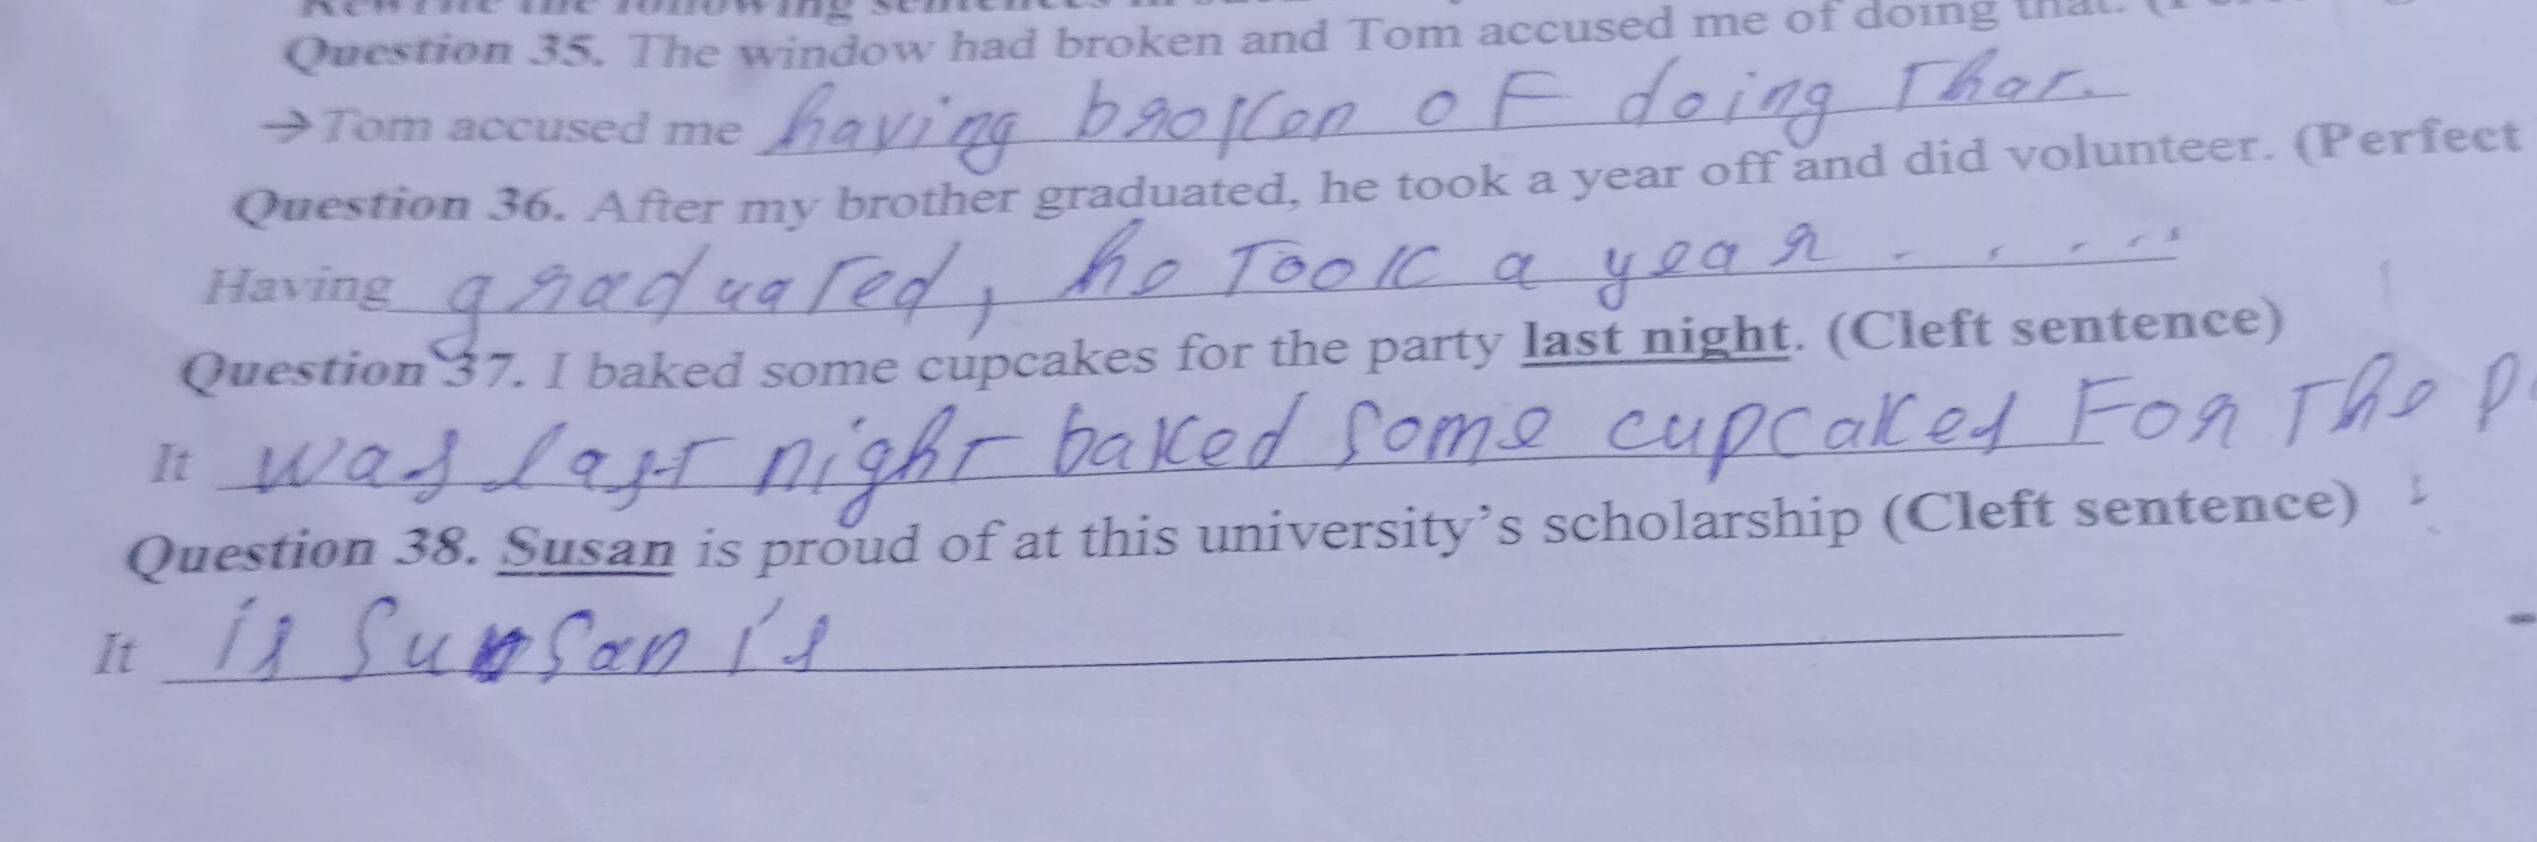 Rewrite the following sentences in
Question 35. The window had broken and Tom accused me of doing that. (
→Tom accused me having broken of doing that.
Question 36. After my brother graduated, he took a year off and did volunteer. (Perfect
Having graduated, he took a year . . . . . .
Question 37. I baked some cupcakes for the party last night. (Cleft sentence)
It was last night baked some cupcakes For the p
Question 38. Susan is proud of at this university's scholarship (Cleft sentence)
It is Susan is